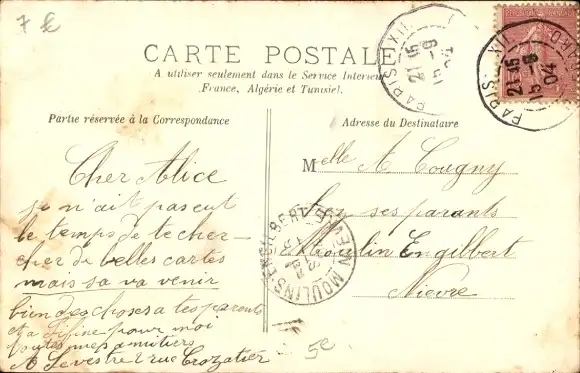 7 €
CARTE POSTALE
A utiliser seulement dans le Service Interieur
(France, Algérie et Tunisie).
Partie réservée à la Correspondance
Adresse du Destinataire
Cher Alice
je n'ait pas eut
le temps de te cher-
cher de belles cartes
mais sa va venir
bien des choses a tes parents
et a Fifine pour moi
toutes mes amitiers
A Levestre 2 rue Crozatier
Melle A Cougny
chez ses parants
a Moulin Engilbert
Nievre
PARIS XII
21 45
15 -9
04
PARIS XII
21 45
15 -9
04
MOULINS-ENGILBERT
NIEVRE
5e